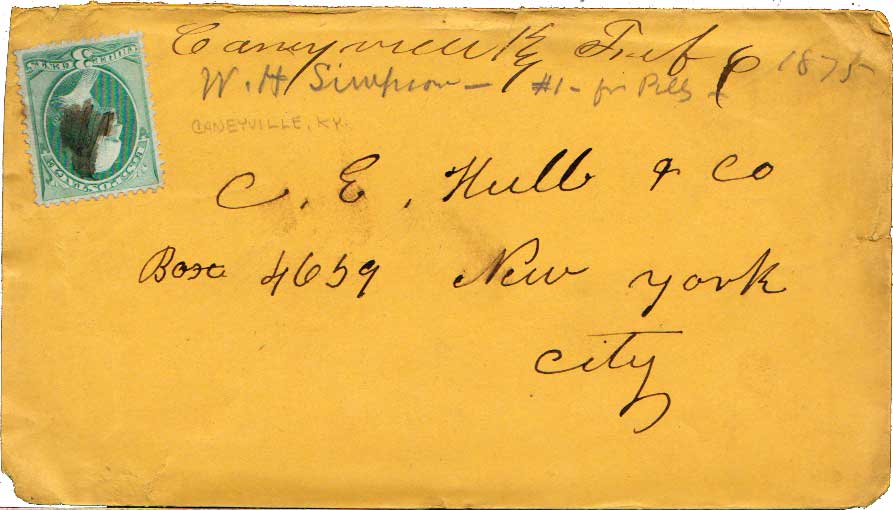 Caneyville Ky Feb 6 1875
W. H Simpson - #1 - for Pills -
CANEYVILLE, KY.
C. E. Hull & Co
Box 4659 New york
City